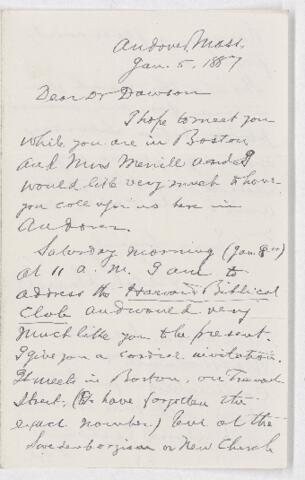 Andover Mass.
Jan. 5, 1887
Dear Dr Dawson
I hope to meet you
while you are in Boston
and Mrs Merrill and I
would like very much to have
you call upon us here in
Andover.
Saturday morning (Jan 8th)
at 11 a. m. I am to
address the Harvard Biblical
Club and would very
much like you to be present.
I give you a cordial invitation.
It meets in Boston, on Tremont
Street. (I have forgotten the
exact number.) but at the
Swedenborgian or New Church